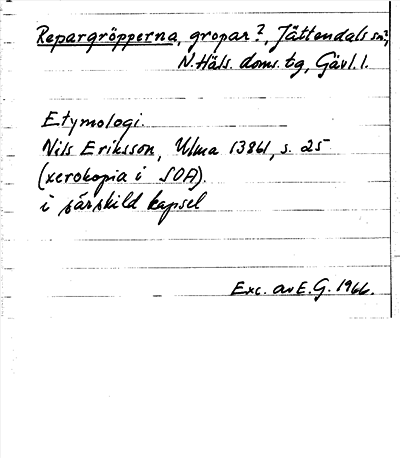 Repargröpperna, gropar?, Jättendals sn?,
N. Häls. doms. tg, Gävl. l.
Etymologi.
Nils Eriksson, Ulma 13861, s. 25
(xerokopia i SOA).
i särskild kapsel
Exc. av E. G. 1966.